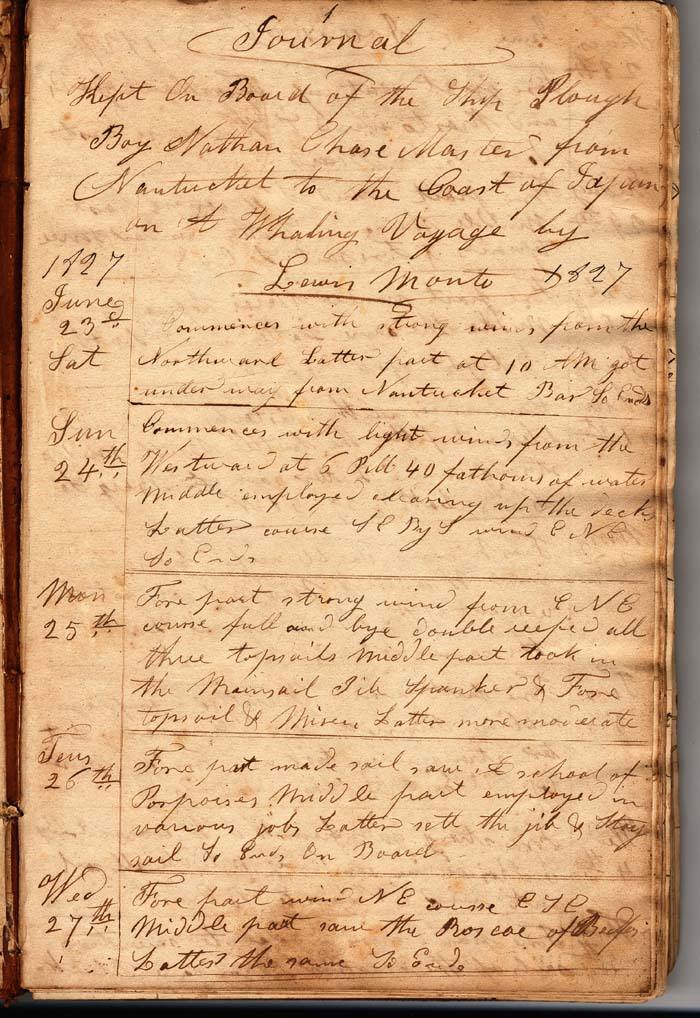 1
Journal
Kept On Board of the Ship Plough
Boy Nathan Chase Master from
Nantucket to the Coast of Japan
on A Whaling Voyage by
Lewis Monto 1827
1827
June
23d
Sat
Commences with strong winds from the
Northward Latter part at 10 AM got
under way from Nantucket Bar So Ends
Sun
24th
Commences with light winds from the
Westward at 6 PM 40 fathoms of water
Middle employed clearing up the decks
Latter course SE By S wind E N E
So Ends
Mon
25th
Fore part strong wind from E N E
course full and bye double reefed all
three topsails Middle part took in
the Mainsail Jib Spanker & Fore
topsail & Mizen Latter more moderate
Teus
26th
Fore part made sail saw A school of
Porpoises Middle part employed in
various jobs Latter sett the jib & Stay
sail So Ends On Board
Wed
27th
Fore part wind NE course E S E
Middle part saw the Roscoe of
Latter the same So Ends